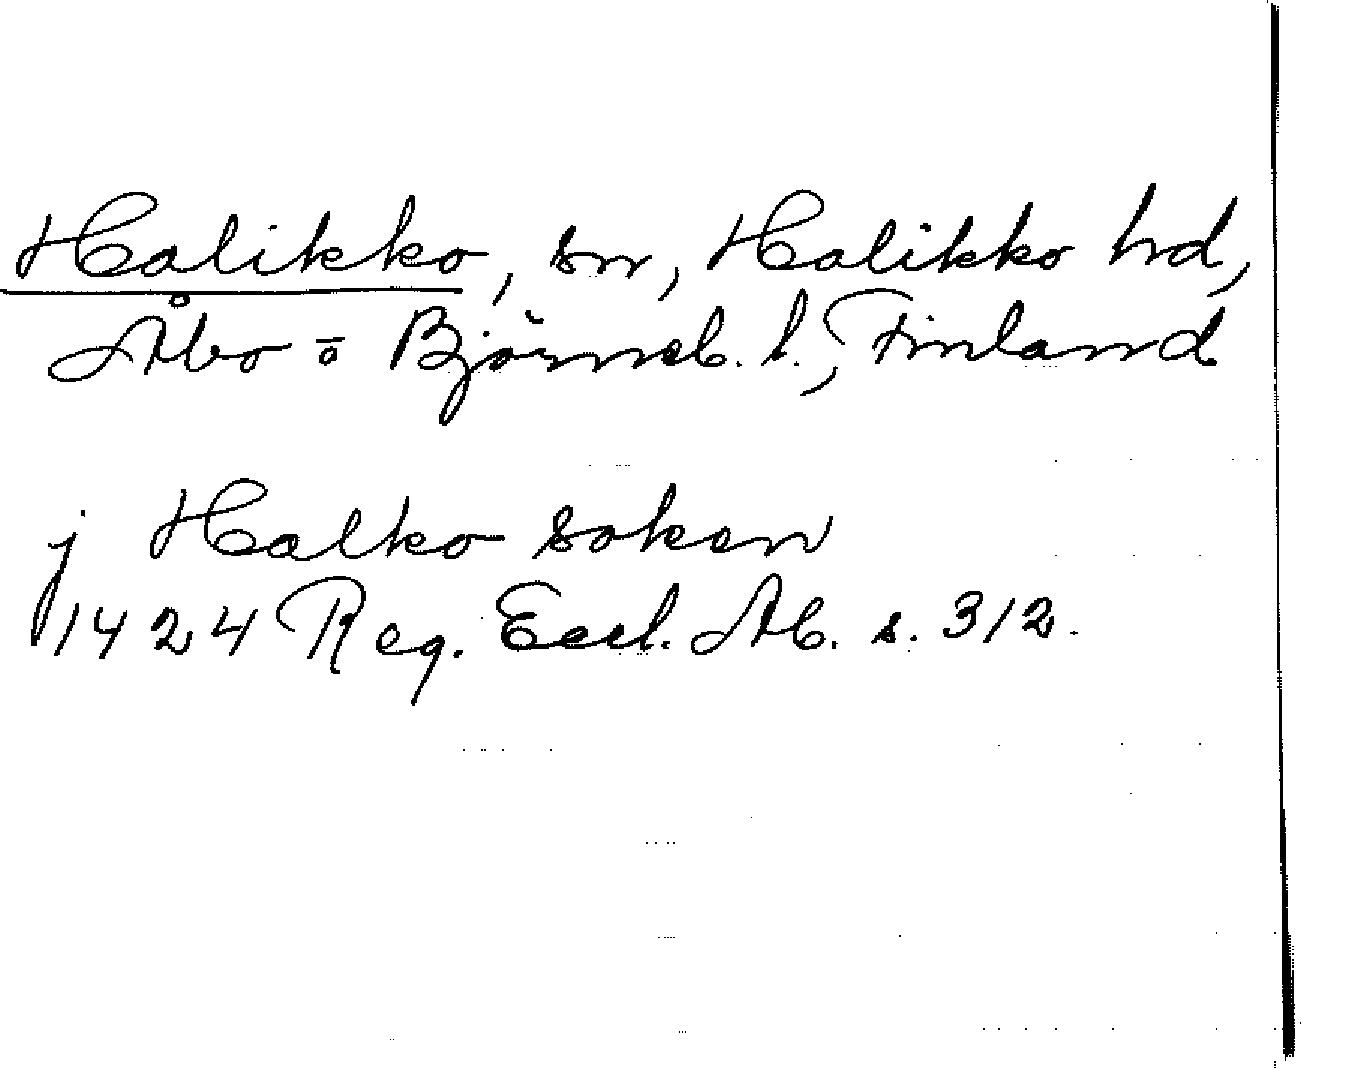 Halikko, sn, Halikko hd,
Åbo o Björneb. l., Finland
j Halko soken
1424 Reg. Eccl. Ab. s. 312.